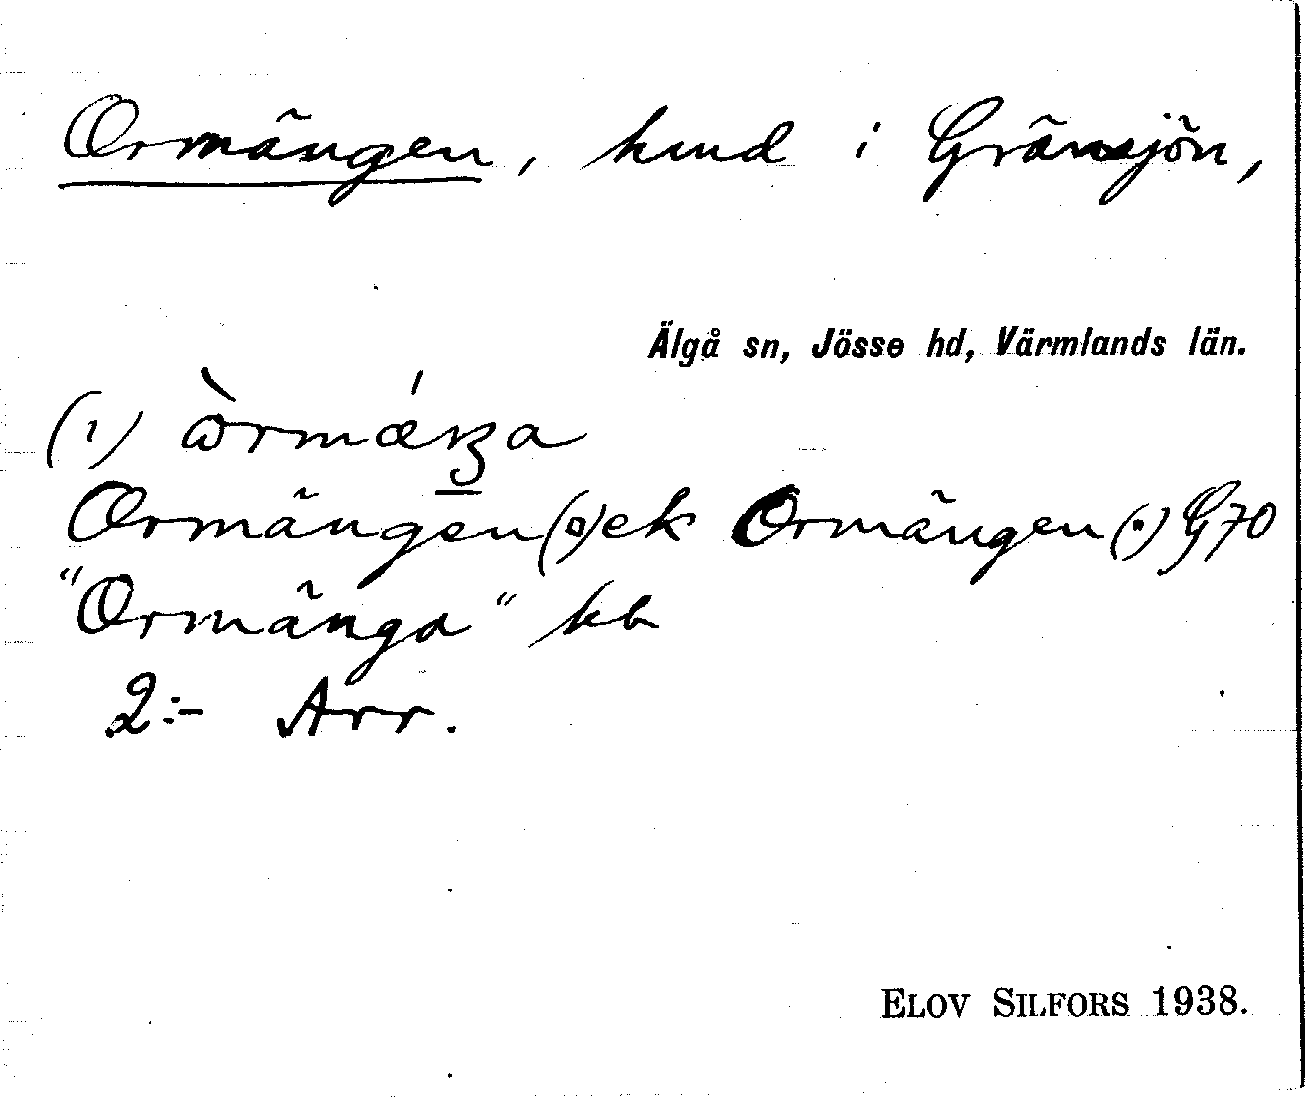 Ormängen, hmd i Gränsjön,
Älgå sn, Jösse hd, Värmlands län.
(1)
Ormängen (o) ek Ormängen (•) G70
"Ormänga" kb
2:- Arr.
ELOV SILFORS 1938.